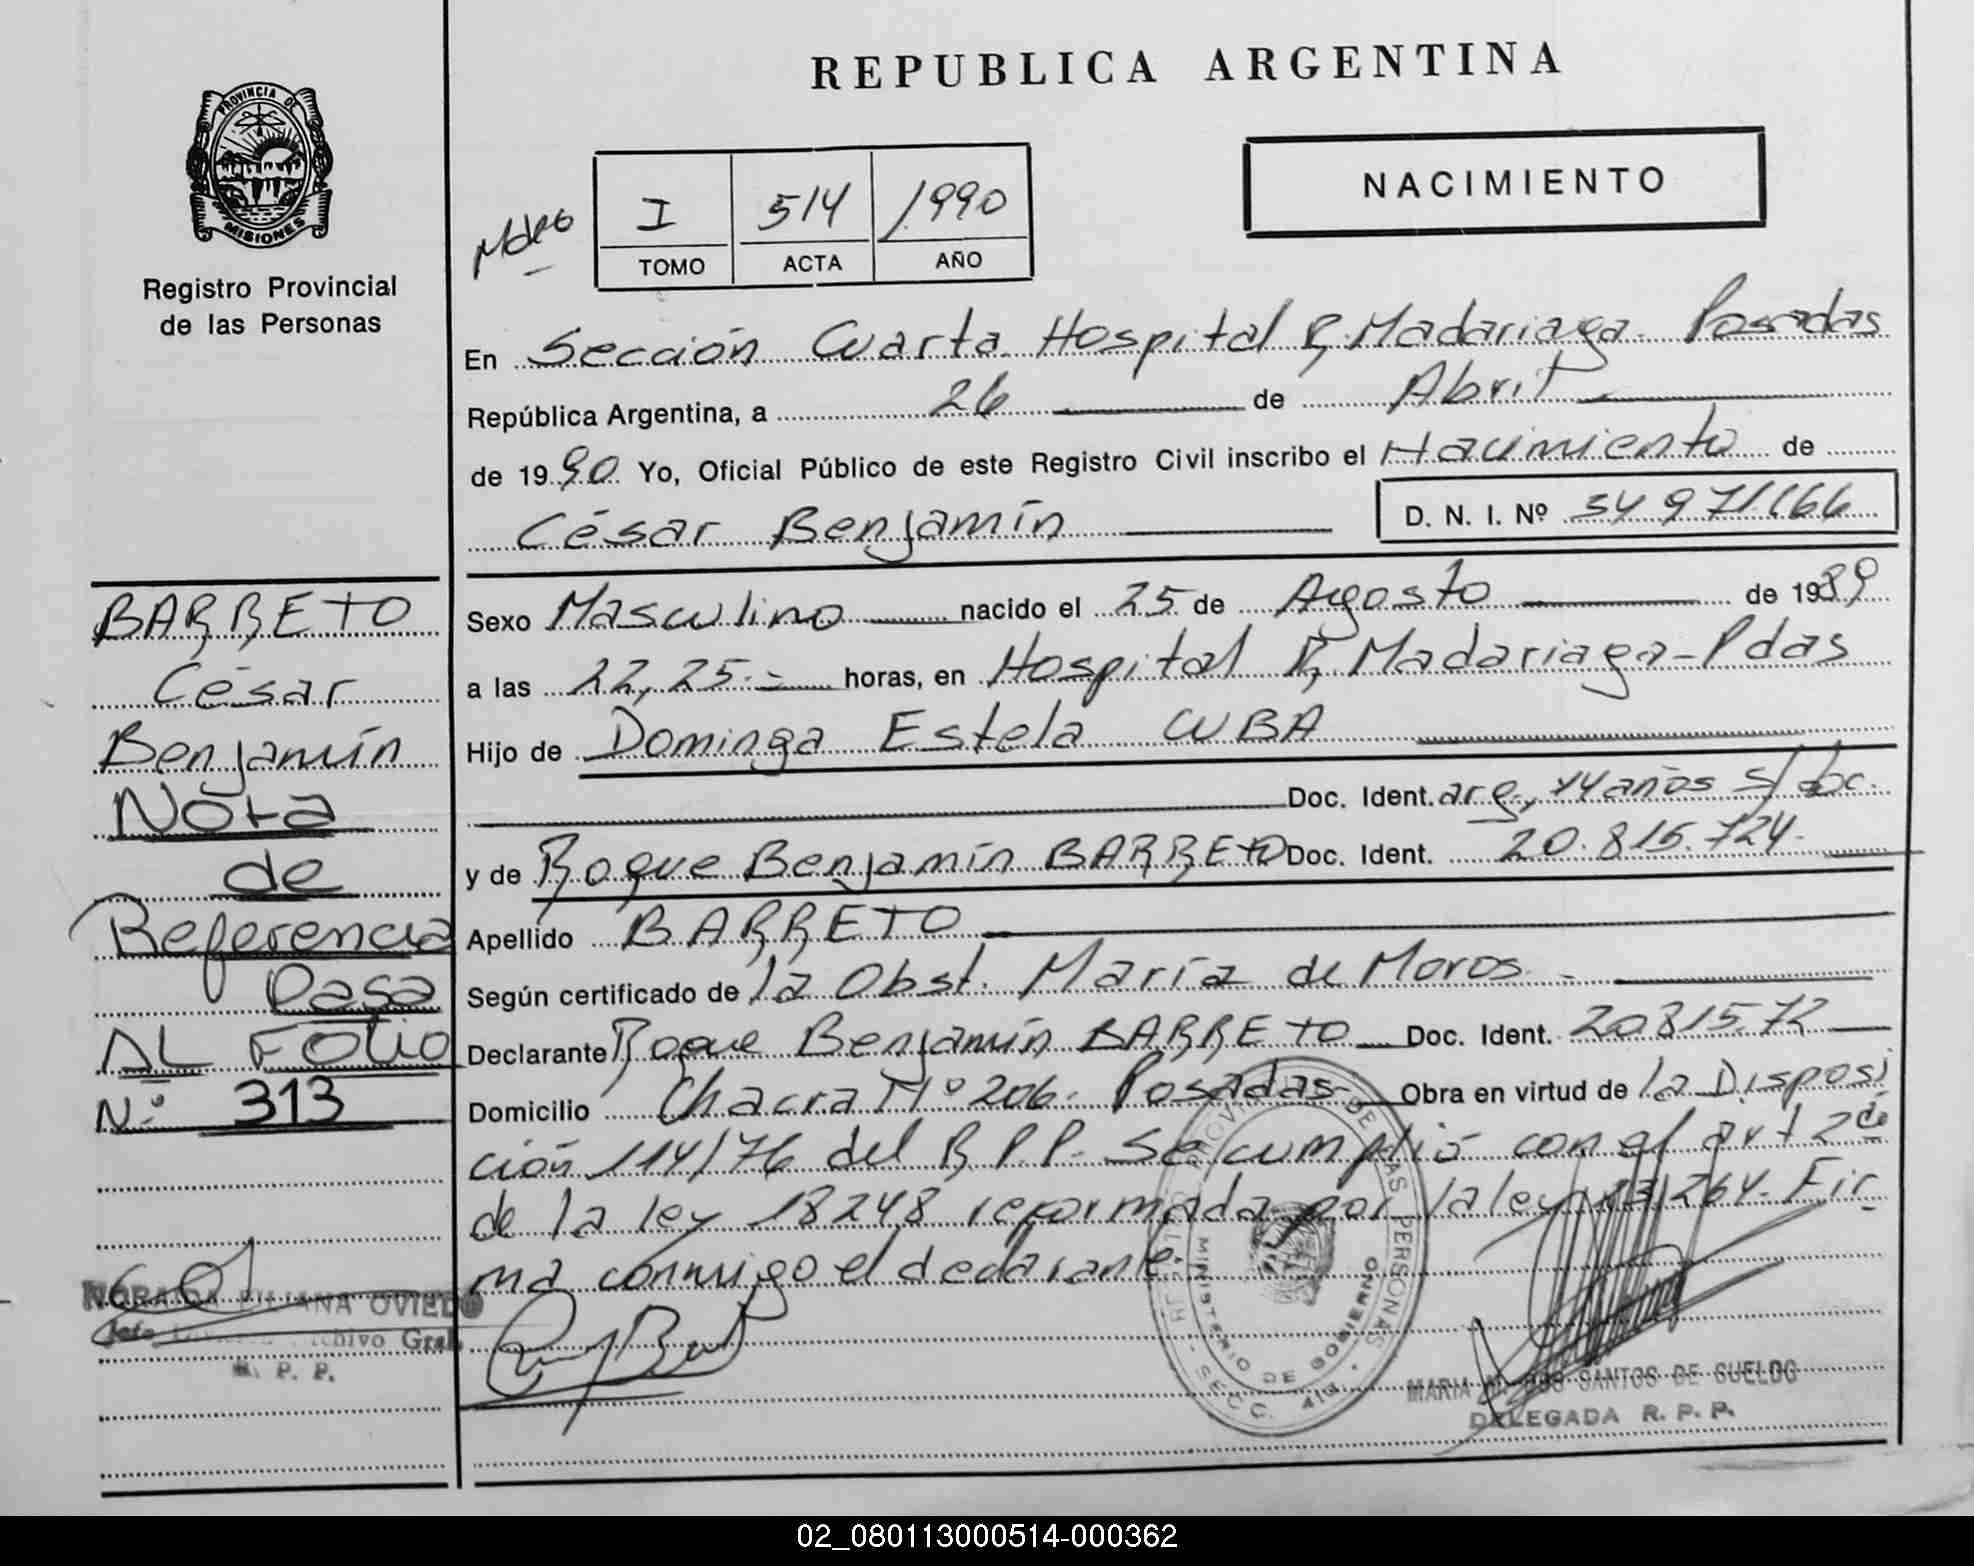 REPUBLICA ARGENTINA
PROVINCIA DE
MISIONES
Registro Provincial
de las Personas
I 514 1990
TOMO ACTA AÑO
NACIMIENTO
En Sección Cuarta Hospital R, Madariaga - Posadas
República Argentina, a 26 de Abril
de 1990 Yo, Oficial Público de este Registro Civil inscribo el Nacimiento de
César Benjamín D. N. I. Nº 34 971.166
BARRETO
César
Benjamín
Nota
de
Referencia
Pasa
AL FOLIO
Nº 313
NORAIDA LILIANA OVIEDO
Jefe Archivo Gral.
R. P. P.
Sexo Masculino nacido el 25 de Agosto de 1989
a las 22,25.- horas, en Hospital R, Madariaga - Pdas
Hijo de Dominga Estela CUBA
Doc. Ident. arg, 44 años s/doc.
y de Roque Benjamín BARRETO Doc. Ident. 20.815.724.
Apellido BARRETO
Según certificado de la Obst. María de Moros.-
Declarante Roque Benjamín BARRETO Doc. Ident. 20.815.72
Domicilio Chacra Nº 206. Posadas Obra en virtud de la Disposi
ción 114/76 del R P.P. Se cumplió con el art 2 de
de la ley 18248 reformada por la ley 23.264. Fir
ma conmigo el declarante
MINISTERIO DE GOBIERNO
SECC. 4ta.
MARIA DOS SANTOS DE SUELDO
DELEGADA R. P. P.
02_080113000514-000362